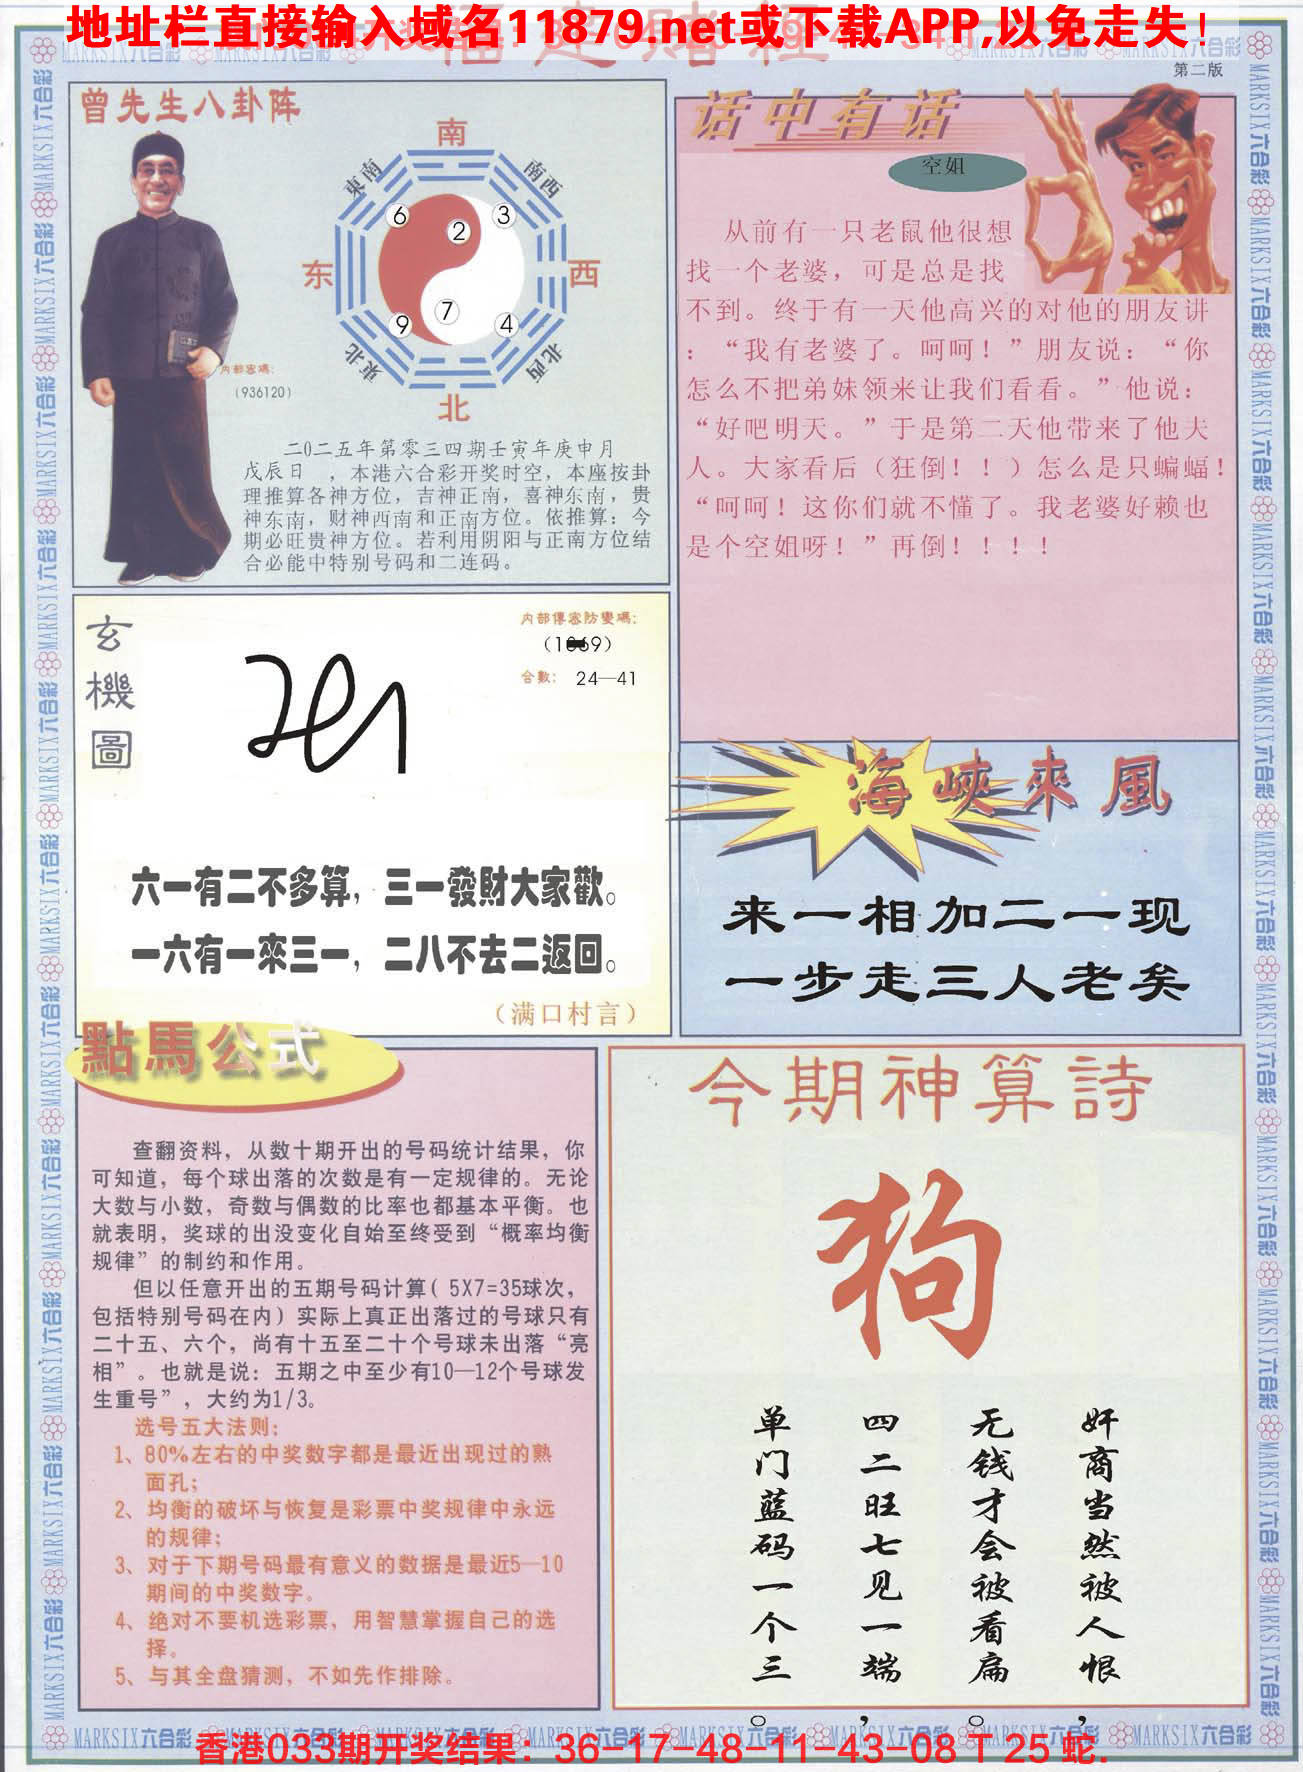 地址栏直接输入域名11879.net或下载APP,以免走失!
福建赌经
第二版
曾先生八卦阵
南
東南
南西
6
2
3
东
西
9
7
4
東北
北西
北
内部密碼:
(936120)
二0二五年第零三四期壬寅年庚申月
戊辰日 ,本港六合彩开奖时空,本座按卦
理推算各神方位,吉神正南,喜神东南,贵
神东南,财神西南和正南方位。依推算:今
期必旺贵神方位。若利用阴阳与正南方位结
合必能中特别号码和二连码。
话中有话
空姐
从前有一只老鼠他很想
找一个老婆,可是总是找
不到。终于有一天他高兴的对他的朋友讲
:“我有老婆了。呵呵!”朋友说:“你
怎么不把弟妹领来让我们看看。”他说:
“好吧明天。”于是第二天他带来了他夫
人。大家看后(狂倒!!)怎么是只蝙蝠!
“呵呵!这你们就不懂了。我老婆好赖也
是个空姐呀!”再倒!!!!
玄機圖
内部傳密防變碼:
合數: 24—41
六一有二不多算,三一發財大家歡。
一六有一來三一,二八不去二返回。
(满口村言)
海峽來風
来一相加二一现
一步走三人老矣
點馬公式
查翻资料,从数十期开出的号码统计结果,你
可知道,每个球出落的次数是有一定规律的。无论
大数与小数,奇数与偶数的比率也都基本平衡。也
就表明,奖球的出没变化自始至终受到“概率均衡
规律”的制约和作用。
但以任意开出的五期号码计算(5X7=35球次,
包括特别号码在内)实际上真正出落过的号球只有
二十五、六个,尚有十五至二十个号球未出落“亮
相”。也就是说:五期之中至少有10—12个号球发
生重号”,大约为1/3。
选号五大法则:
1、80%左右的中奖数字都是最近出现过的熟
面孔;
2、均衡的破坏与恢复是彩票中奖规律中永远
的规律;
3、对于下期号码最有意义的数据是最近5—10
期间的中奖数字。
4、绝对不要机选彩票,用智慧掌握自己的选
择。
5、与其全盘猜测,不如先作排除。
今期神算詩
狗
奸商当然被人恨,
无钱才会被看扁。
四二旺七见一端,
单门蓝码一个三。
MARKSIX六合彩
香港033期开奖结果:36-17-48-11-43-08 T 25 蛇.